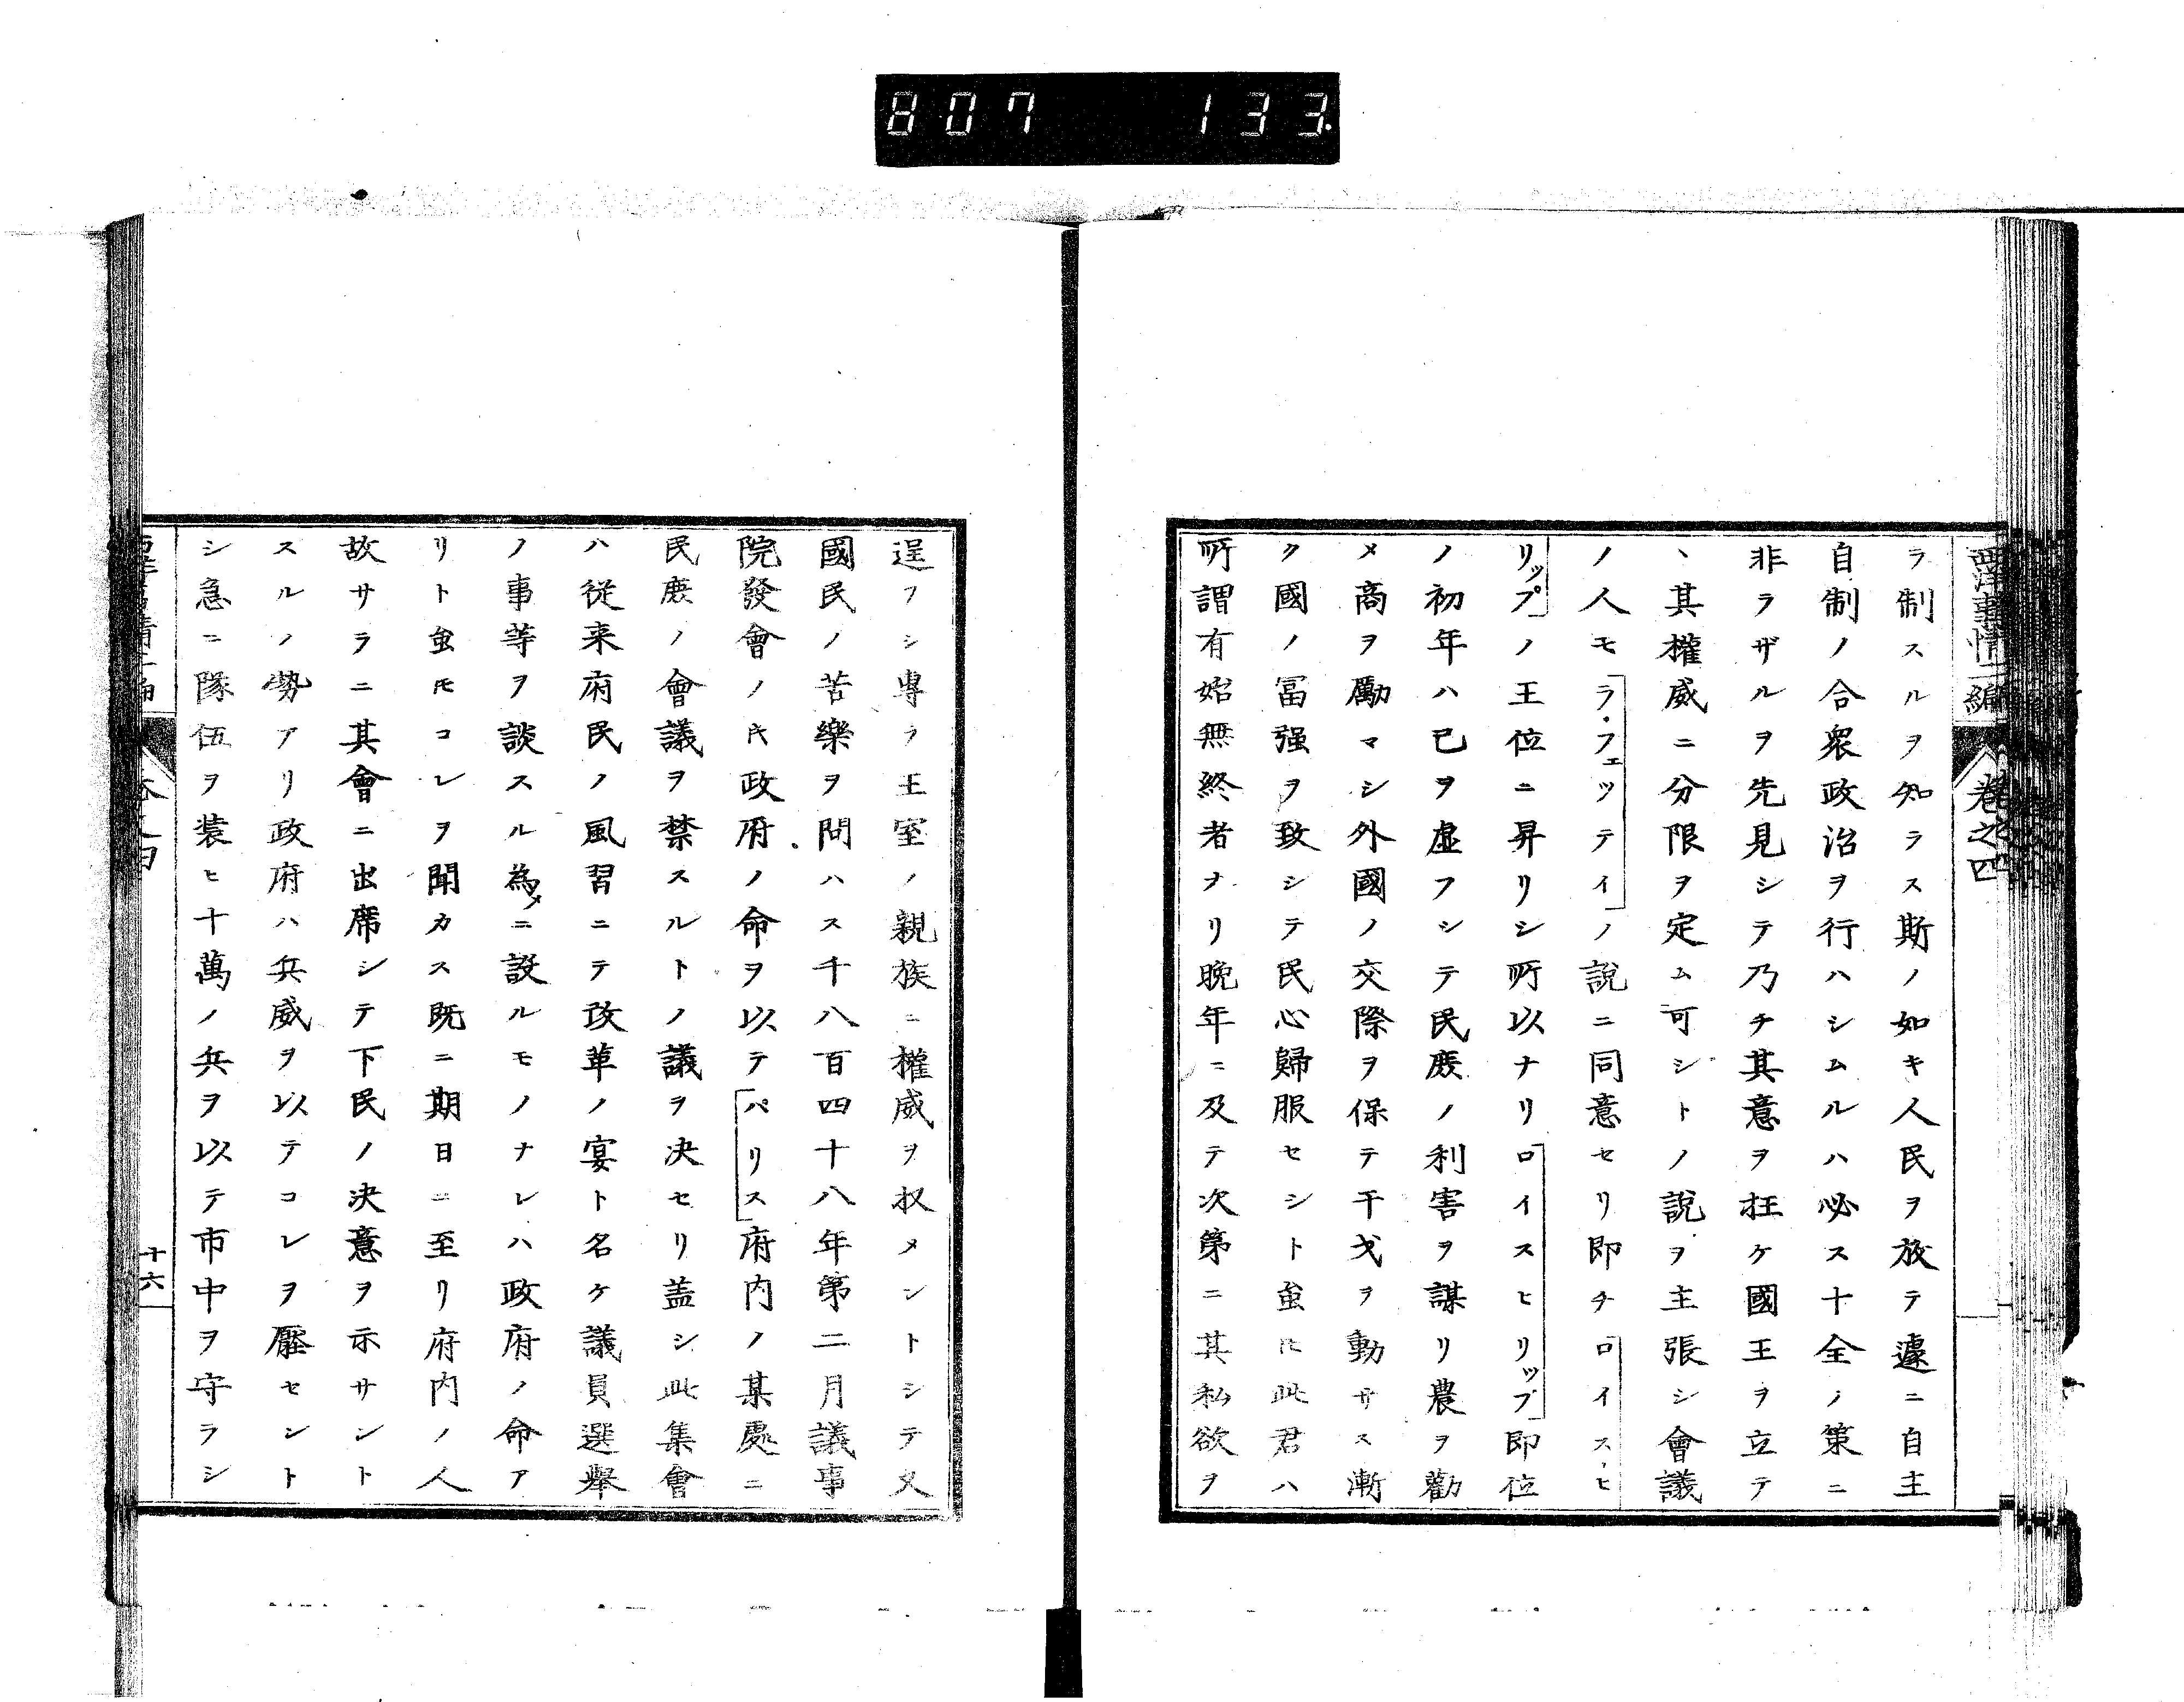 807 133
西洋事情二編 卷之四
ラ制スルヲ知ラス斯ノ如キ人民ヲ放テ遽ニ自主
自制ノ合衆政治ヲ行ハシムルハ必ス十全ノ策ニ
非ラザルヲ先見シテ乃チ其意ヲ抂ケ國王ヲ立テ
、其權威ニ分限ヲ定ム可シトノ說ヲ主張シ會議
ノ人モラ・フェツテイノ說ニ同意セリ即チロイス・ヒ
リップノ王位ニ昇リシ所以ナリロイスヒリップ即位
ノ初年ハ已ヲ虛フシテ民庶ノ利害ヲ謀リ農ヲ勸
メ商ヲ勵マシ外國ノ交際ヲ保テ干戈ヲ動サス漸
ク國ノ冨强ヲ致シテ民心歸服セシト虽𪜈此君ハ
所謂有始無終者ナリ晚年ニ及テ次第ニ其私欲ヲ
逞フシ專ラ王室ノ親族ニ權威ヲ収メントシテ又
國民ノ苦樂ヲ問ハス千八百四十八年第二月議事
院發會ノ𪜈政府ノ命ヲ以テパリス府内ノ某處ニ
民庶ノ會議ヲ禁スルトノ議ヲ决セリ盖シ此集會
ハ從来府民ノ風習ニテ改革ノ宴ト名ケ議員選舉
ノ事等ヲ談スル為メニ設ルモノナレハ政府ノ命ア
リト虽𪜈コレヲ聞カス既ニ期日ニ至リ府内ノ人
故サラニ其會ニ出席シテ下民ノ決意ヲ示サント
スルノ勢アリ政府ハ兵威ヲ以テコレヲ壓セント
シ急ニ隊伍ヲ装ヒ十萬ノ兵ヲ以テ市中ヲ守ラシ
十六